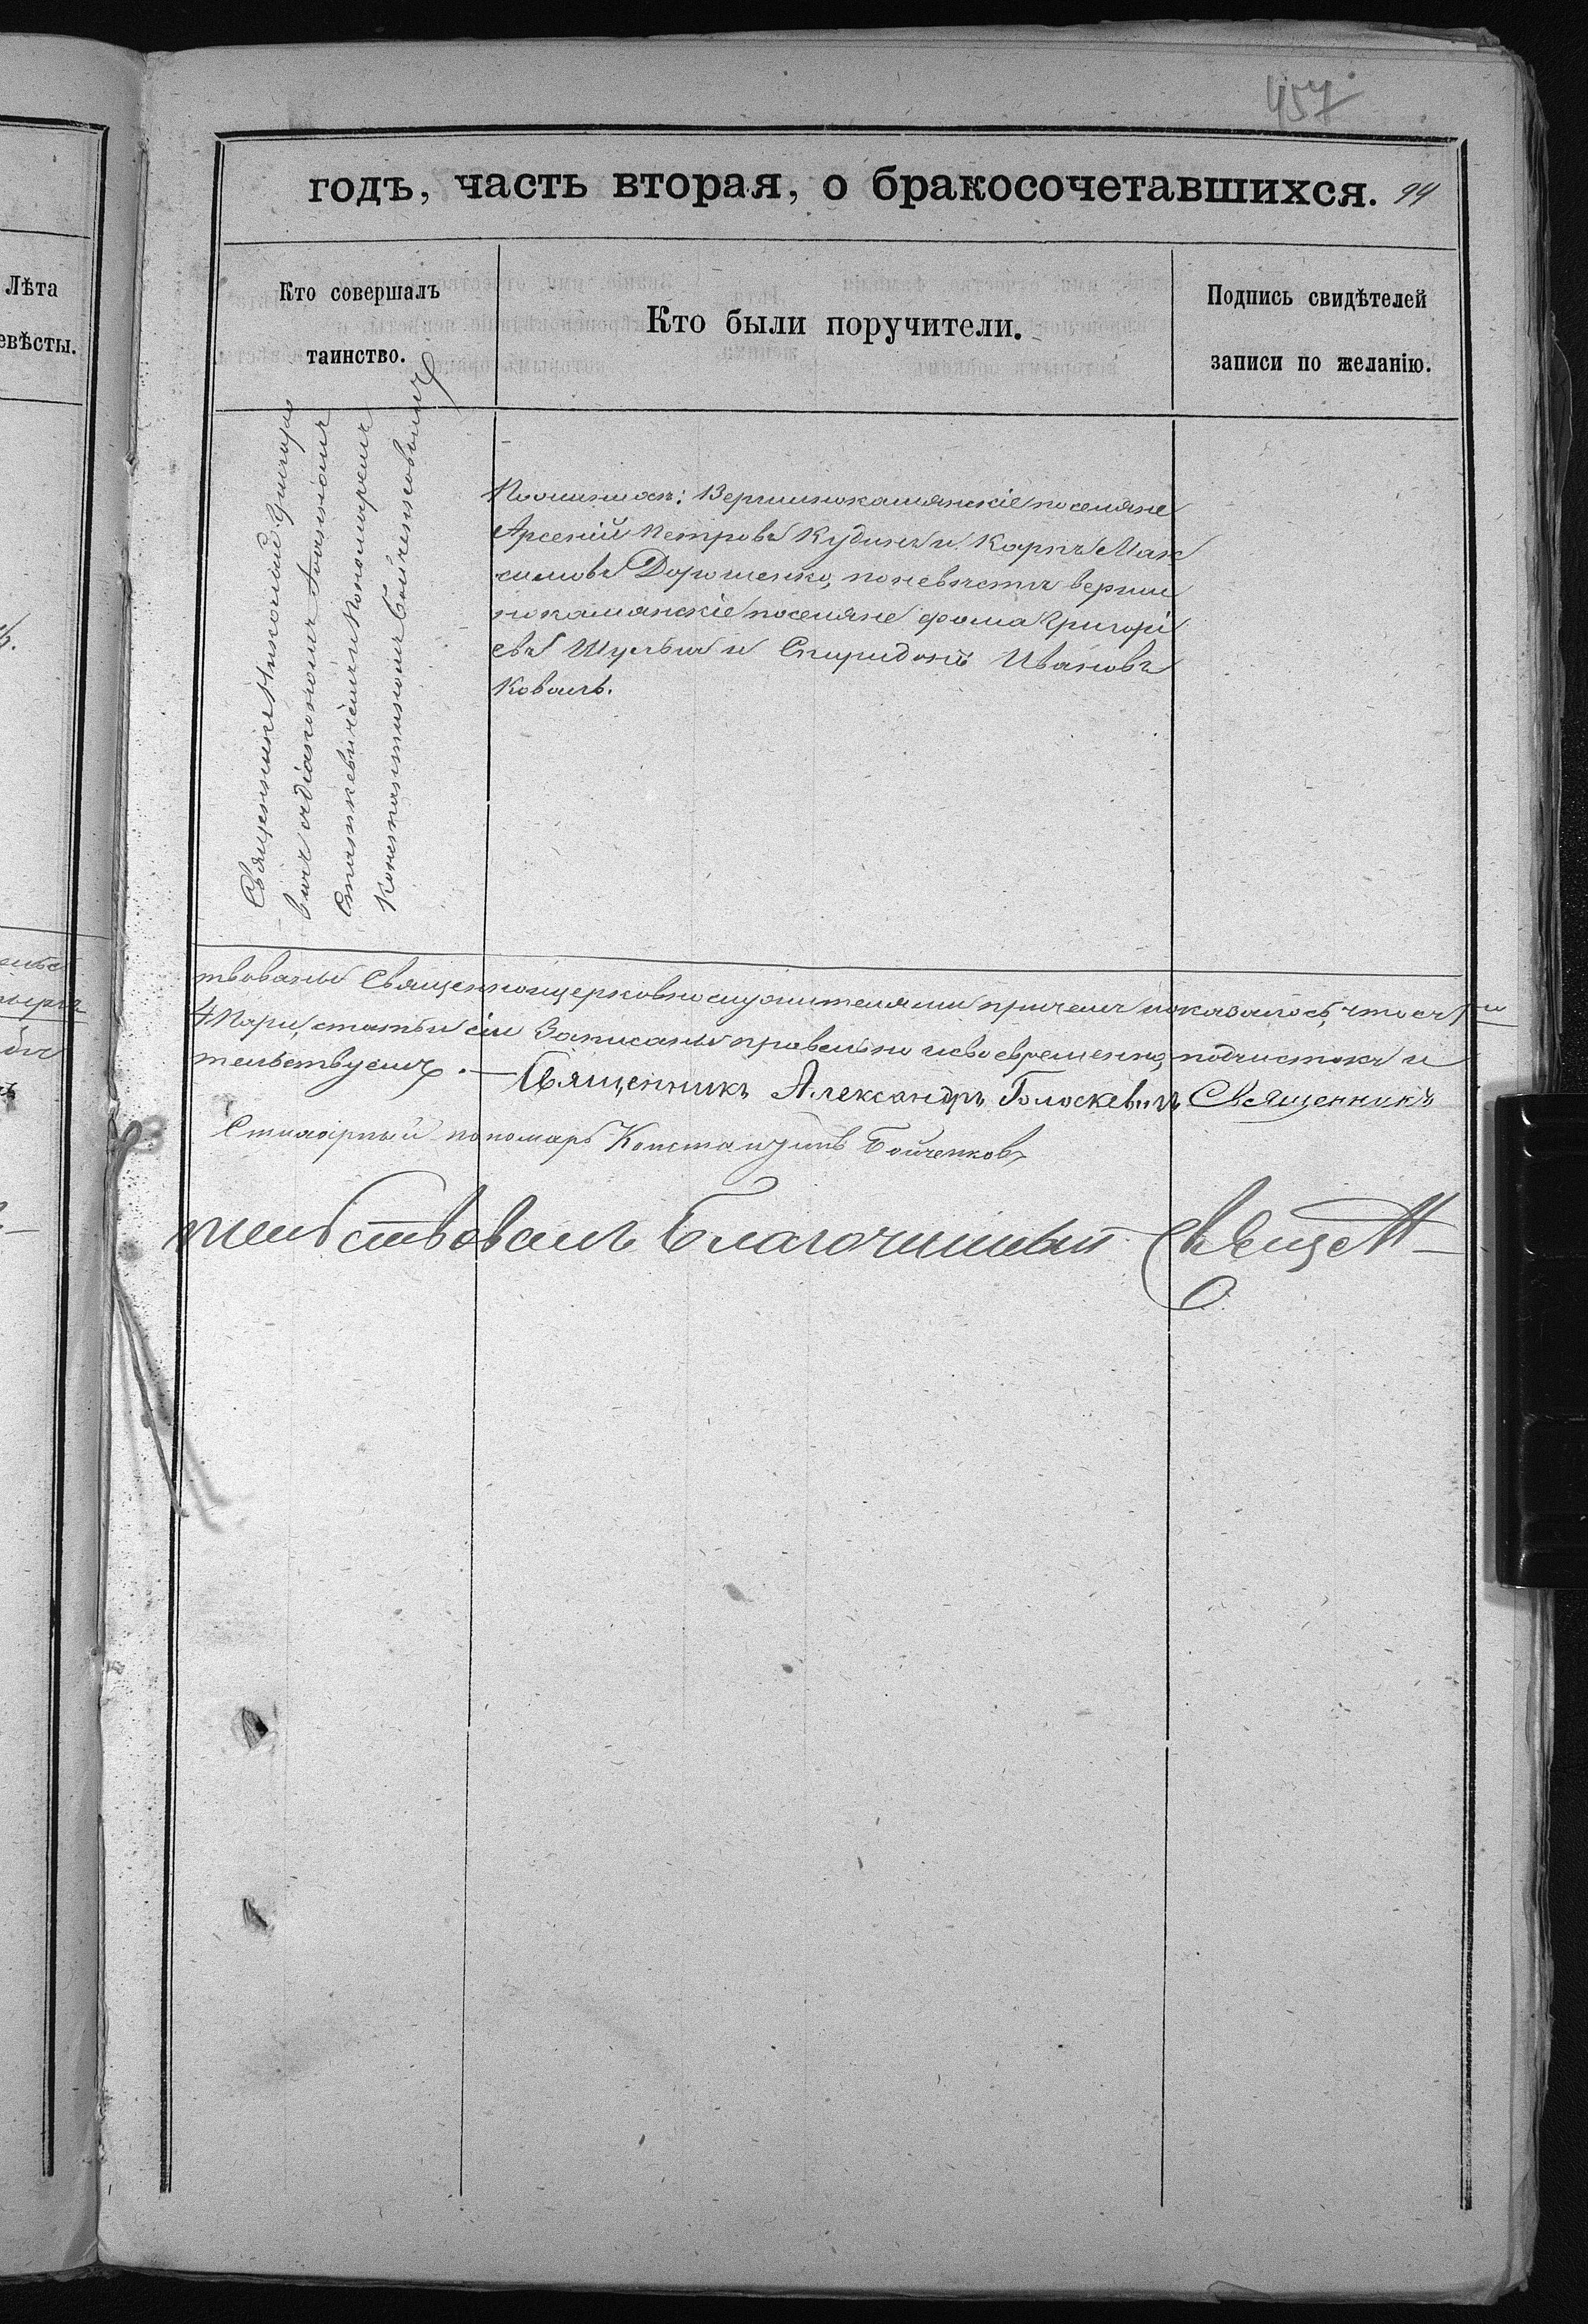 457
годъ, часть вторая, о бракосочетавшихся. 94
Лѣта
евѣсты.
Кто совершалъ
таинство.
Кто были поручители.
Подпись свидѣтелей
записи по желанію.
Священникъ Николай Григоро
вичъ съ діакономъ Іоанномъ
Станкевичемъ и Пономаремъ
Константиномъ Бойченковымъ
По жениху: Вершинокамянскіе поселяне
Арсеній Петровъ Кудинъ и Карпъ Мак
симовъ Дорошенко, по невѣстѣ верши
нокамянскіе поселяне Фома Григорі
евъ Шульга и Спиридонъ Ивановъ
Коваль.
твованы Священноцерковнослужителями причемъ показалось, что съ 1и
4 Пари, статьи сіи Записаны правельно и своевременно, подчистокъ и
тельствуемъ. — Священникъ Александръ Голоскевичъ Священникъ
пономарь Константинъ Бойченковъ
тельствовалъ Благочинный Свящ